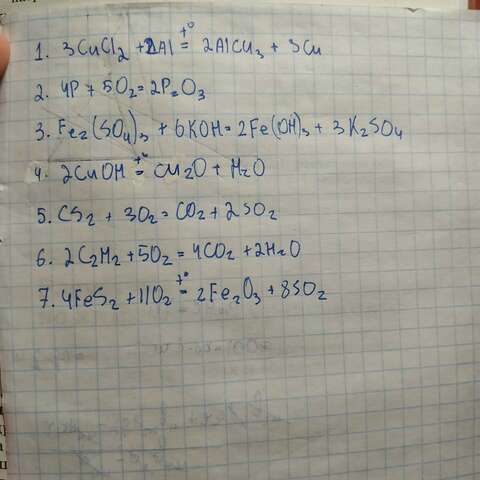 1. 3CuCl₂ + 2Al =^t° 2AlCl₃ + 3Cu
2. 4P + 5O₂ = 2P₂O₃
3. Fe₂(SO₄)₃ + 6KOH = 2Fe(OH)₃ + 3K₂SO₄
4. 2CuOH =^t° Cu₂O + H₂O
5. CS₂ + 3O₂ = CO₂ + 2SO₂
6. 2C₂H₂ + 5O₂ = 4CO₂ + 2H₂O
7. 4FeS₂ + 11O₂ =^t° 2Fe₂O₃ + 8SO₂